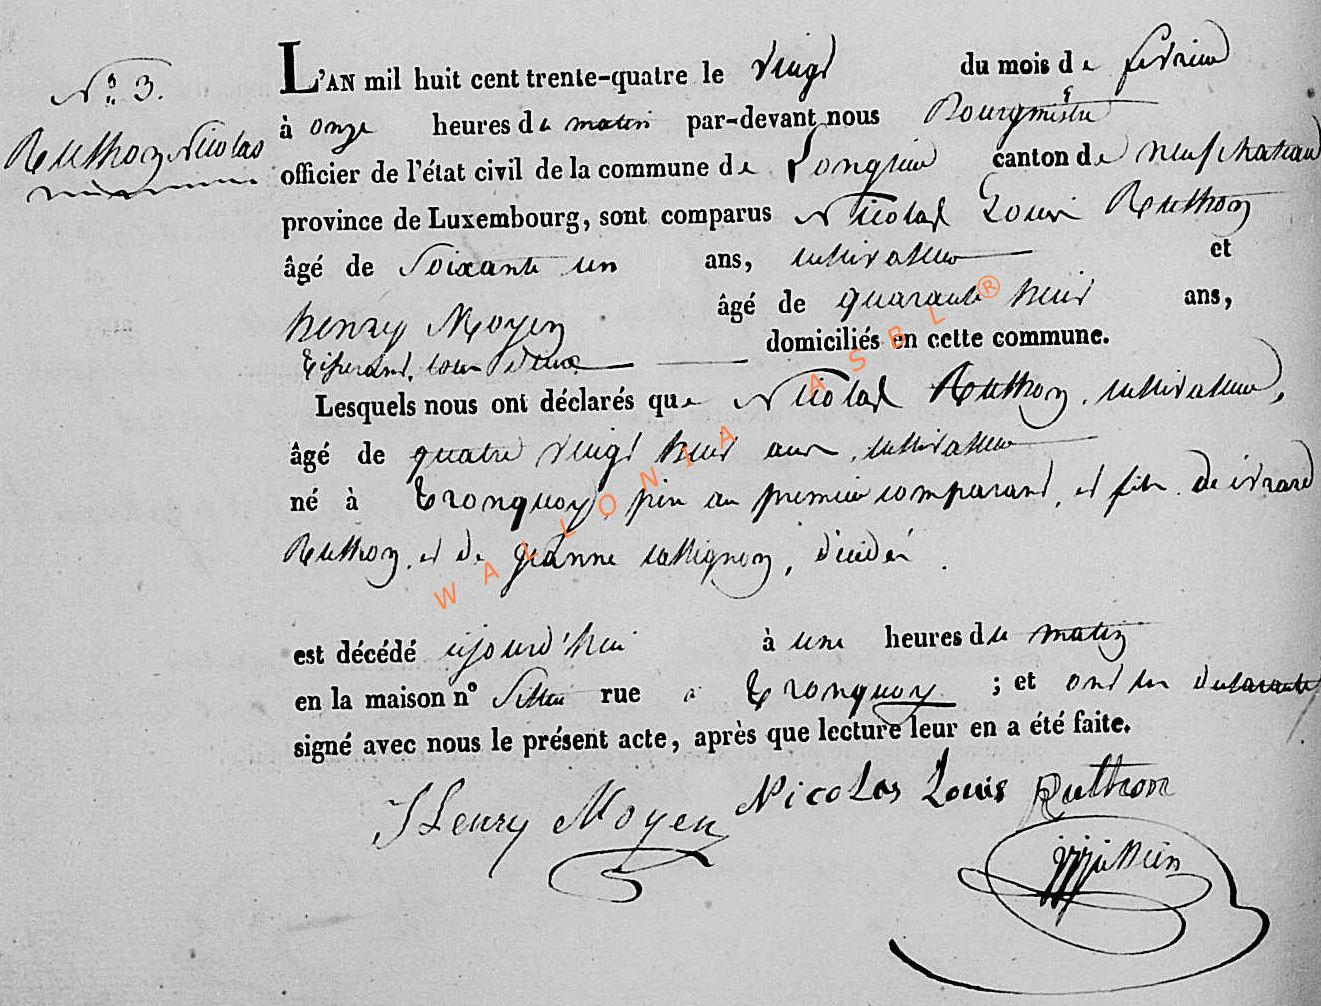 N° 3.
Ruthon Nicolas
L'AN mil huit cent trente-quatre le vingt du mois de février
à onze heures du matin par-devant nous Bourgmestre
officier de l'état civil de la commune de Longlier canton de neufchateau
province de Luxembourg, sont comparus Nicolas Louis Ruthon
âgé de Soixante un ans, cultivateur et
henry Moyen âgé de quarante huit ans,
tisserand, tous deux domiciliés en cette commune.
Lesquels nous ont déclarés que Nicolas Ruthon, cultivateur,
âgé de quatre vingt huit ans, cultivateur
né à Tronquoy, père au premier comparant, et fils de évrard
Ruthon, et de Jeanne, décédés.
est décédé ajourd'hui à une heures du matin
en la maison n° Sept rue à Tronquoy ; et ont les déclarants
signé avec nous le présent acte, après que lecture leur en a été faite.
Henry Moyen Nicolas Louis Ruthon
WALLONIA ASBL ®